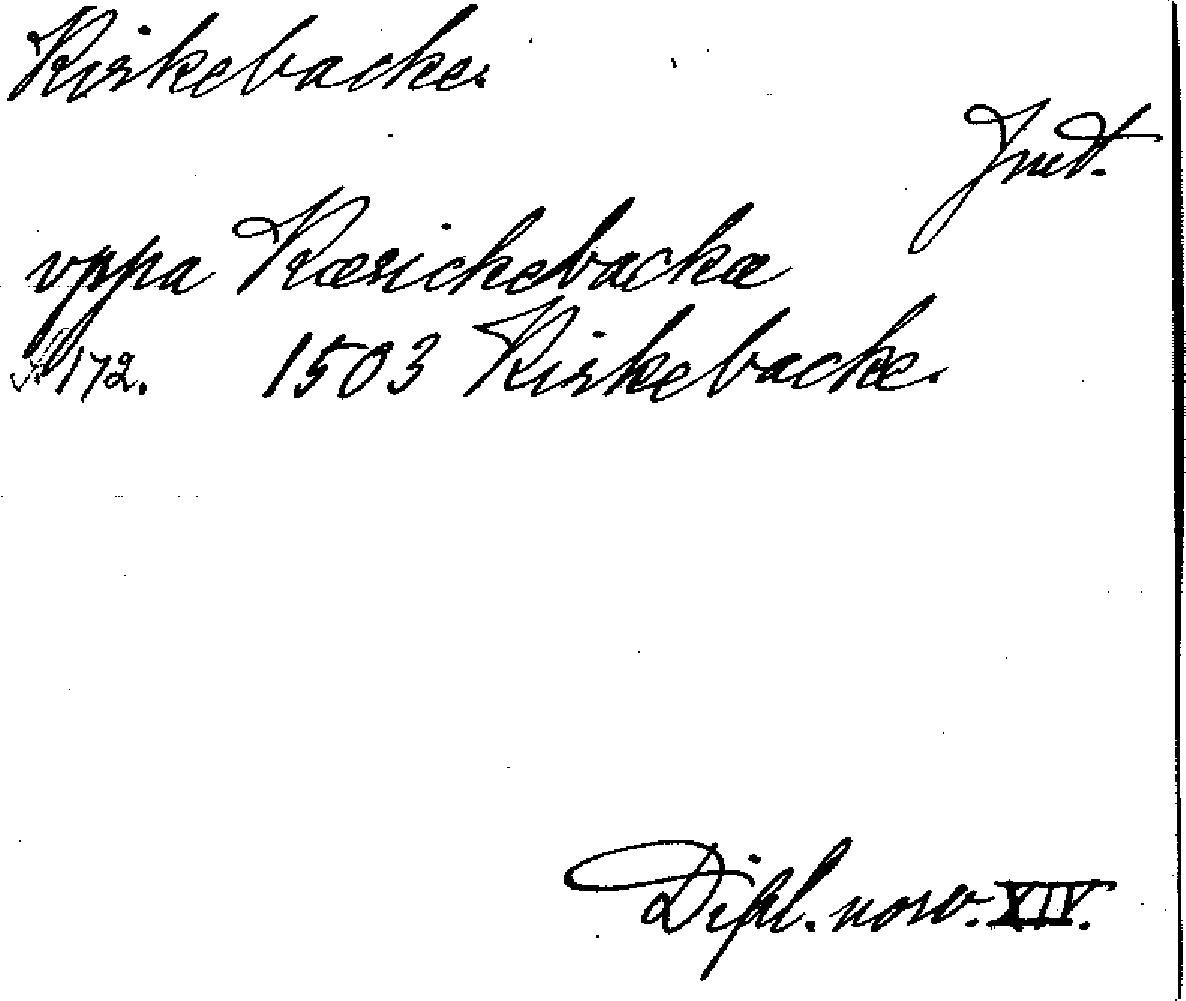 Kirkebacke.
Jmt.
vppa Kærickebackæ
S. 172. 1503 Kirkebacke.
Dipl. norv. XIV.